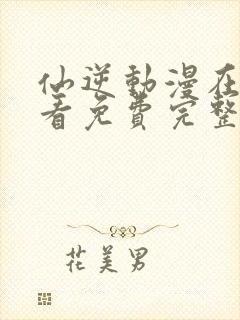 仙逆動漫在
看免費完整
花美男